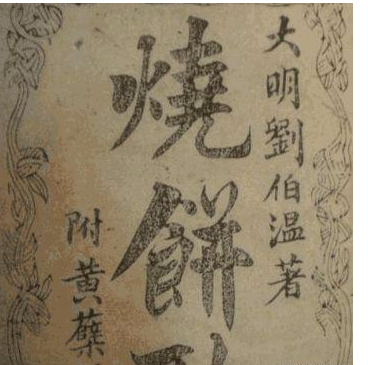 大明劉伯温著
燒餅
附黃蘗